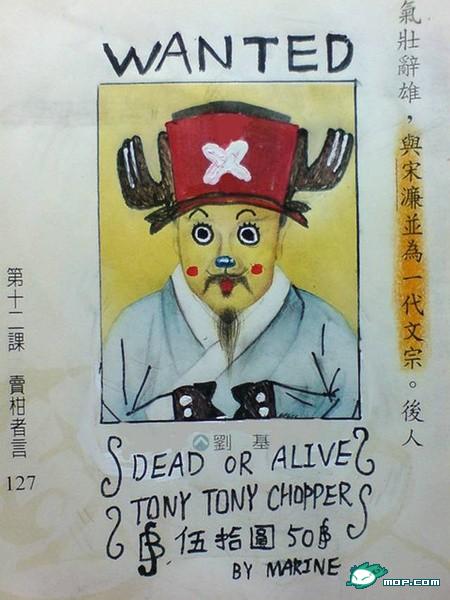 WANTED
氣壯辭雄，與宋濂並為一代文宗。後人
第十二課 賣柑者言
127
劉基
DEAD OR ALIVE
TONY TONY CHOPPER
฿ 伍拾圓 50฿
BY MARINE
mop.com